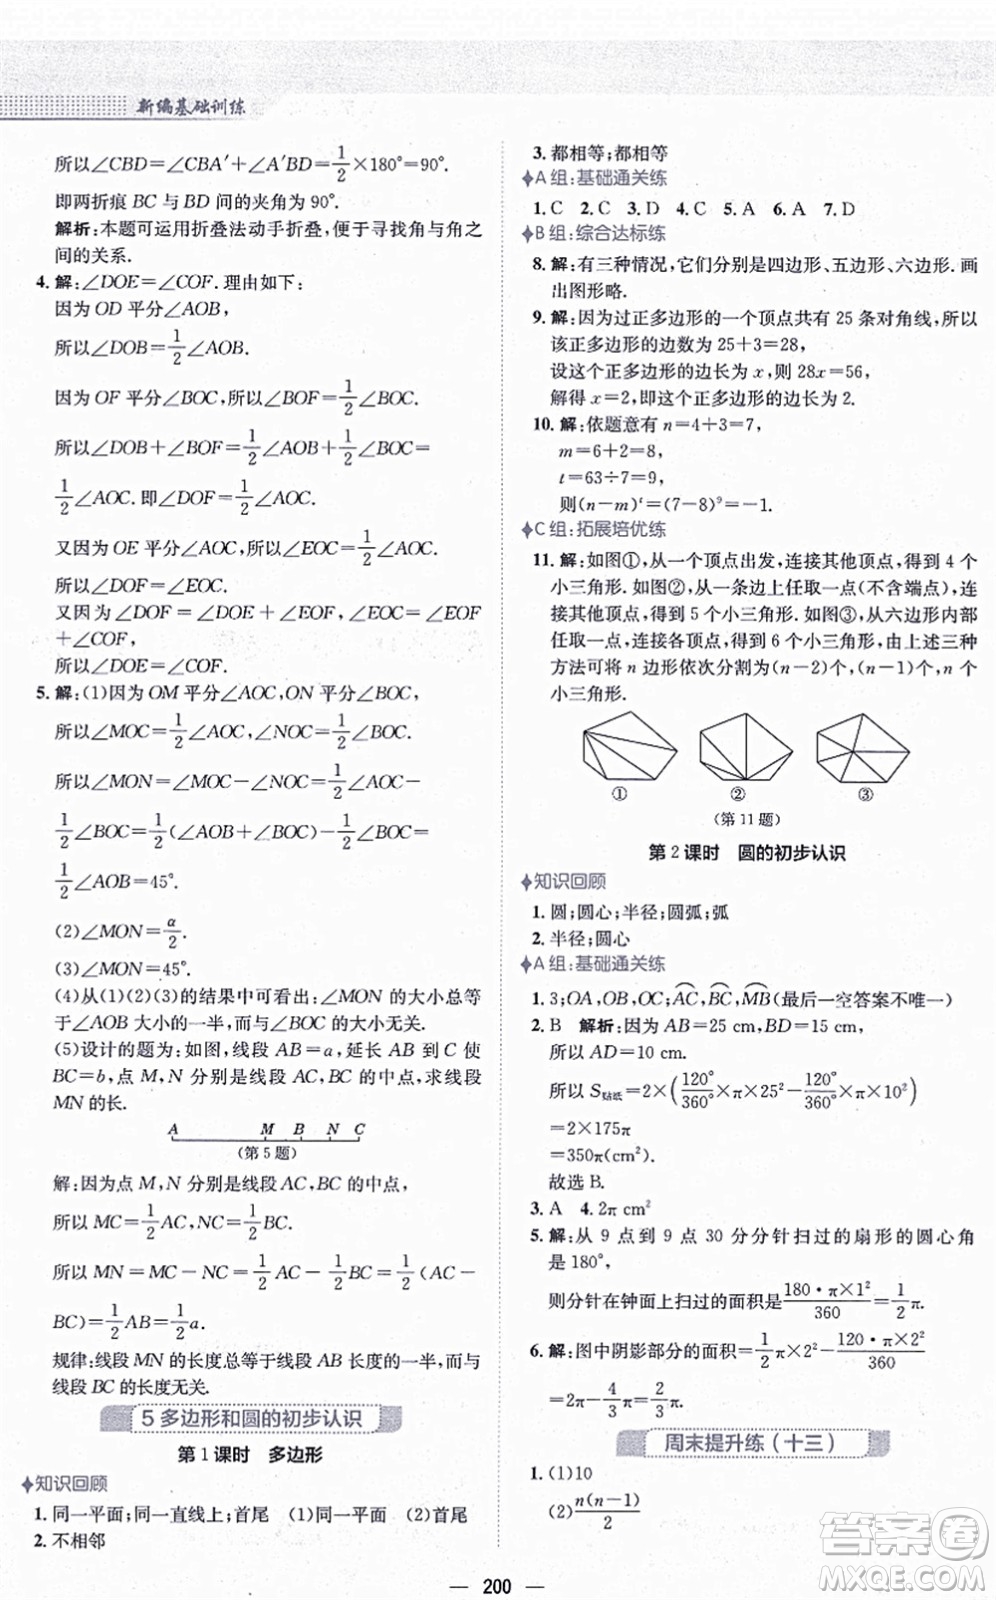 新编基础训练
所以∠CBD=∠CBA′+∠A′BD=1/2×180°=90°.
即两折痕 BC 与 BD 间的夹角为90°.
解析:本题可运用折叠法动手折叠,便于寻找角与角之
间的关系.
4. 解:∠DOE=∠COF.理由如下:
因为 OD 平分∠AOB,
所以∠DOB=1/2∠AOB.
因为 OF 平分∠BOC,所以∠BOF=1/2∠BOC.
所以∠DOB+∠BOF=1/2∠AOB+1/2∠BOC=
1/2∠AOC.即∠DOF=1/2∠AOC.
又因为 OE 平分∠AOC,所以∠EOC=1/2∠AOC.
所以∠DOF=∠EOC.
又因为∠DOF=∠DOE+∠EOF,∠EOC=∠EOF
+∠COF,
所以∠DOE=∠COF.
5. 解:(1)因为 OM 平分∠AOC,ON 平分∠BOC,
所以∠MOC=1/2∠AOC,∠NOC=1/2∠BOC.
所以∠MON=∠MOC-∠NOC=1/2∠AOC-
1/2∠BOC=1/2(∠AOB+∠BOC)-1/2∠BOC=
1/2∠AOB=45°.
(2)∠MON=α/2.
(3)∠MON=45°.
(4)从(1)(2)(3)的结果中可看出:∠MON 的大小总等
于∠AOB 大小的一半,而与∠BOC 的大小无关.
(5)设计的题为:如图,线段 AB=a,延长 AB 到 C 使
BC=b,点 M,N 分别是线段 AC,BC 的中点,求线段
MN 的长.
A M B N C
(第5题)
解:因为点 M,N 分别是线段 AC,BC 的中点,
所以 MC=1/2AC,NC=1/2BC.
所以 MN=MC-NC=1/2AC-1/2BC=1/2(AC-
BC)=1/2AB=1/2a.
规律:线段 MN 的长度总等于线段 AB 长度的一半,而与
线段 BC 的长度无关.
5 多边形和圆的初步认识
第1课时 多边形
知识回顾
1. 同一平面;同一直线上;首尾 (1)同一平面 (2)首尾
2. 不相邻
3. 都相等;都相等
A组:基础通关练
1. C 2. C 3. D 4. C 5. A 6. A 7. D
B组:综合达标练
8. 解:有三种情况,它们分别是四边形、五边形、六边形. 画
出图形略.
9. 解:因为过正多边形的一个顶点共有 25 条对角线,所以
该正多边形的边数为 25+3=28,
设这个正多边形的边长为 x,则 28x=56,
解得 x=2,即这个正多边形的边长为 2.
10. 解:依题意有 n=4+3=7,
m=6+2=8,
t=63÷7=9,
则(n-m)^t=(7-8)^9=-1.
C组:拓展培优练
11. 解:如图①,从一个顶点出发,连接其他顶点,得到 4 个
小三角形. 如图②,从一条边上任取一点(不含端点),连
接其他顶点,得到 5 个小三角形. 如图③,从六边形内部
任取一点,连接各顶点,得到 6 个小三角形,由上述三种
方法可将 n 边形依次分割为(n-2)个,(n-1)个,n 个
小三角形.
① ② ③
(第11题)
第2课时 圆的初步认识
知识回顾
1. 圆;圆心;半径;圆弧;弧
2. 半径;圆心
A组:基础通关练
1. 3;OA,OB,OC;⌒AC,⌒BC,⌒MB(最后一空答案不唯一)
2. B 解析:因为 AB=25 cm,BD=15 cm,
所以 AD=10 cm.
所以 S贴纸=2×(120°/360°×π×25²-120°/360°×π×10²)
=2×175π
=350π(cm²).
故选 B.
3. A 4. 2π cm²
5. 解:从 9 点到 9 点 30 分分针扫过的扇形的圆心角
是180°,
则分针在钟面上扫过的面积是180·π×1²/360=1/2π.
6. 解:图中阴影部分的面积=1/2π×2²-120·π×2²/360
=2π-4/3π=2/3π.
周末提升练(十三)
1. (1)10
(2)n(n-1)/2
答案圈
MXQE.COM
— 200 —